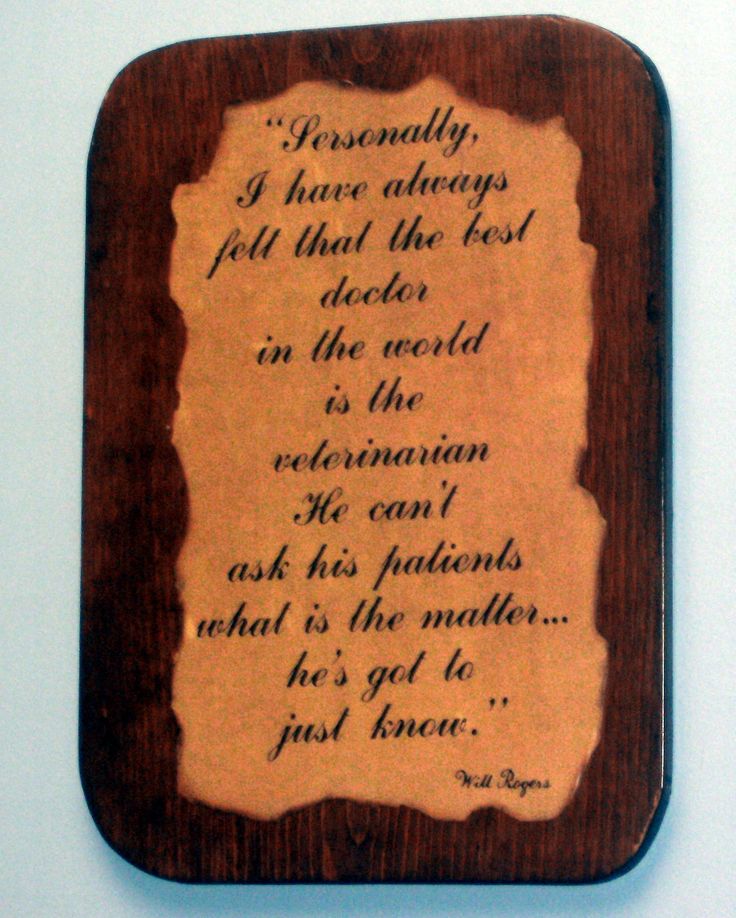 “Personally,
I have always
felt that the best
doctor
in the world
is the
veterinarian
He can't
ask his patients
what is the matter...
he's got to
just know.”
Will Rogers